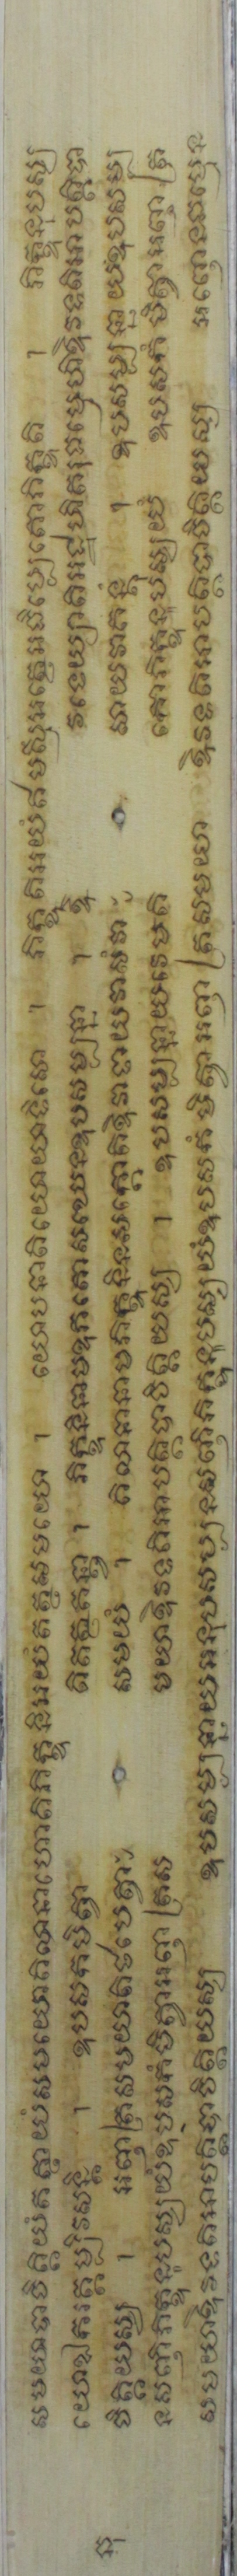 សមយាបាចិត្តិយំតត្ថាយំសមយោគិលានាហោតិភិក្ខុនីអយំតត្ថសមយោ ។ យោបនាតិយោយាទិសោ ។ ភិក្ខូតិអយំឥមស្មិំអត្ថេអធិប្បេតោភិក្ខូតិ ។ ភិក្ខុនុបស្ស
យោឯករត្តម្បិវសន្តិ ។ ឧបសកមិត្វា តិតត្ថគន្ត្វា ។ ភិក្ខុនីនាមឧភតោសង្ឃេឧបសម្បន្នា ។ ឱ វទេយ្យាតិអដ្ឋហិគរុធម្មេហិឱវទតិអាបត្តិបា
ចិត្តិយស្ស ។ អញ្ញត្រសមយាតិឋបេត្វា សមយំ ។ គិលានានាមភិក្ខុនីនសក្កោតិឱវាទាយវាសំវា សាយវាគន្តុំ ។ ឧបសម្បន្នាយឧបសម្ប
នសញ្ញីភិក្ខុនុបស្សយំឧបសកំមិត្វាអញ្ញត្រស មយាឱវទតិអាបត្តិបាចិត្តិយស្ស ។ ឧបសម្បន្នាយវេមតិ កោភិក្ខុនុបស្សយំ ឧបសកំមិត្វាអញ្ញត្រ
សមយាឱវទតិអាបត្តិបាចិត្តិយស្ស ឧបសម្បន្នាយអនុបសម្បនសញ្ញីភិក្ខុនុបស្សយំឧបសកំមិត្វាអញ្ញត្រសមយា ឱវទតិអាបត្តិបាចិត្តិយស្ស អញ្ញេនធម្មេន